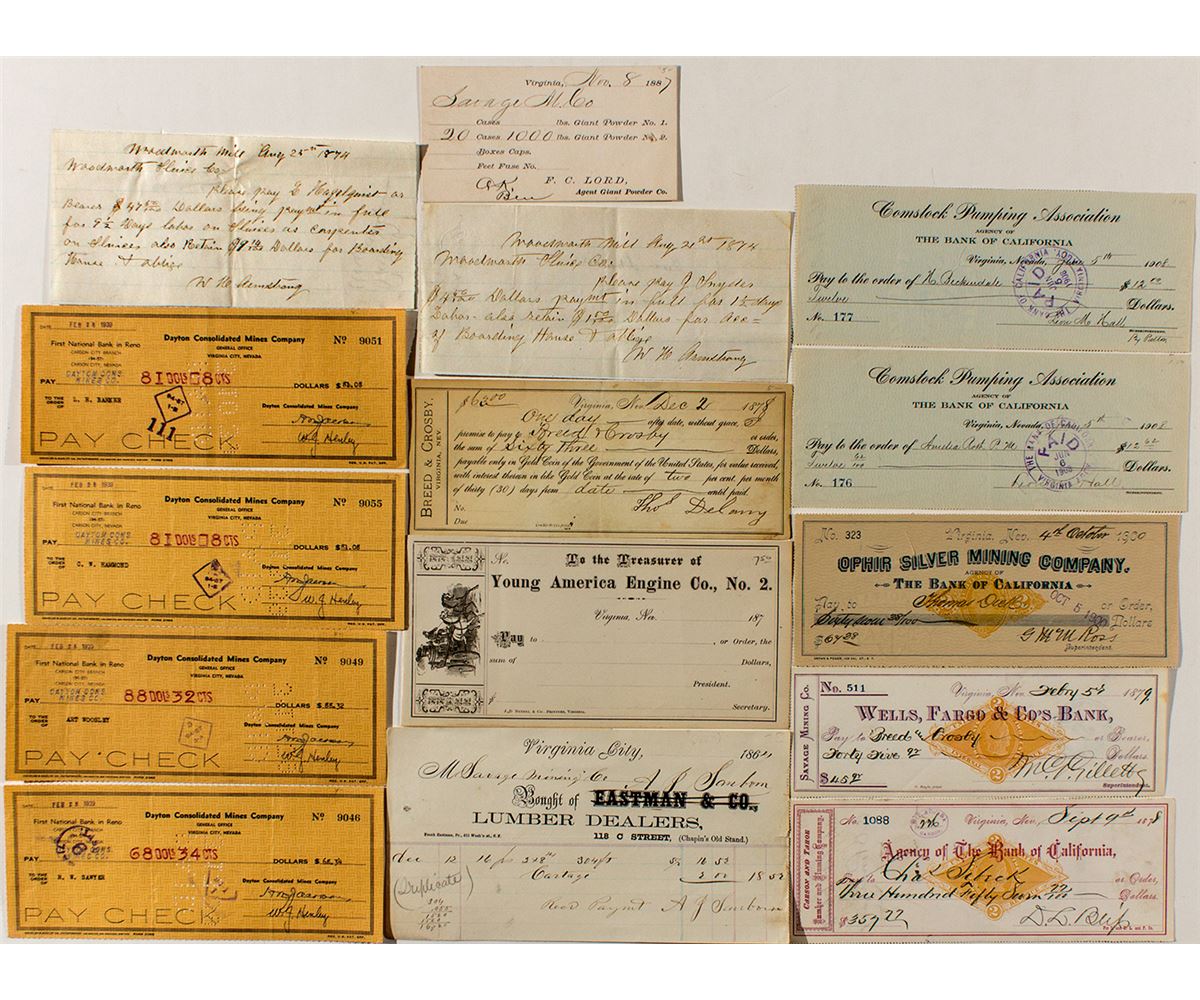 Woodworth Mill Aug 25th 1874
Woodworth Fluice Co
Please pay E Hagelquist or
Bearer $ Dollars being paymt in full
for 9½ Days labor on Fluices as carpenter
on Fluices also Retain Dollars for Boarding
House & oblige
W H Armstrong
DATE FEB 28 1939
First National Bank in Reno
CARSON CITY BRANCH
Dayton Consolidated Mines Company
GENERAL OFFICE
VIRGINIA CITY, NEVADA
No 9051
DAYTON CONS. MINES CO.
PAY 81 DOLS 08 CTS DOLLARS $81.08
TO THE ORDER OF L. R. BARKER
Dayton Consolidated Mines Company
111
W.J. Henley
PAY CHECK
FEB 28 1939
First National Bank in Reno
CARSON CITY BRANCH
Dayton Consolidated Mines Company
GENERAL OFFICE
VIRGINIA CITY, NEVADA
No 9055
DAYTON CONS. MINES CO.
PAY 81 DOLS 08 CTS DOLLARS $81.08
TO THE ORDER OF C. W. HAMMOND
Dayton Consolidated Mines Company
W.J. Henley
PAY CHECK
DATE FEB 28 1939
First National Bank in Reno
CARSON CITY BRANCH
Dayton Consolidated Mines Company
GENERAL OFFICE
VIRGINIA CITY, NEVADA
No 9049
DAYTON CONS. MINES CO.
PAY 88 DOLS 32 CTS DOLLARS $88.32
TO THE ORDER OF ART WOOSLEY
Dayton Consolidated Mines Company
W.J. Henley
PAY CHECK
DATE FEB 28 1939
First National Bank in Reno
Dayton Consolidated Mines Company
GENERAL OFFICE
VIRGINIA CITY, NEVADA
No 9046
PAY 68 DOLS 34 CTS DOLLARS $68.34
TO THE ORDER OF H. W. SAWYER
Dayton Consolidated Mines Company
W.J. Henley
PAY CHECK
Virginia, Nov. 8 1887
Savage M. Co
Cases lbs. Giant Powder No. 1.
20 Cases 1000 lbs. Giant Powder No. 2.
Boxes Caps.
Feet Fuse No.
F. C. LORD,
Agent Giant Powder Co.
Woodworth Mill Aug 21st 1874
Woodworth Fluice Co.
Please pay J Snyder
$ Dollars paymt in full for 1½ days
Labor also retain $ Dollars for acc=
of Boarding House & oblige
W H Armstrong
BREED & CROSBY.
VIRGINIA, NEV.
$63.00 Virginia, Nev. Dec 2 1878
One day after date, without grace, I
promise to pay to Breed & Crosby or order,
the sum of Sixty Three Dollars,
payable only in Gold Coin of the Government of the United States, for value received,
with interest thereon in like Gold Coin at the rate of two per cent. per month
of thirty (30) days from date until paid.
No.
Due
Thos Delany
No. To the Treasurer of
Young America Engine Co., No. 2.
Virginia, Nev. 187
Pay to , or Order, the
sum of Dollars,
$
President.
Secretary.
Virginia City, 186
M Savage Mining Co
Bought of EASTMAN & CO.,
LUMBER DEALERS,
118 C STREET, (Chapin's Old Stand.)
Dec 12 16 16 52
Cartage 2 00 18 52
(Duplicate)
Recd Paymt A J Sanborn
Comstock Pumping Association
AGENCY OF
THE BANK OF CALIFORNIA
Virginia, Nevada, June 5th 1908
Pay to the order of N. Beckendale $12 00
Twelve Dollars.
No. 177
THE BANK OF CALIFORNIA PAID JUN 6 1908 VIRGINIA
Leon M Hall
Comstock Pumping Association
AGENCY OF
THE BANK OF CALIFORNIA
Virginia, Nevada, 5th 1908
Pay to the order of $12 62
Twelve 62/100 Dollars.
No. 176
THE BANK OF CALIFORNIA PAID JUN 6 1908 VIRGINIA
Hall
No. 323 Virginia, Nev. 4th October 1900
OPHIR SILVER MINING COMPANY.
AGENCY OF
THE BANK OF CALIFORNIA
OCT 5 1900
Pay to Thomas Dick or Order,
Sixty four 28/100 Dollars
$64 28
Superintendent.
SAVAGE MINING CO.
No. 511 Virginia, Nev. Febry 5th 1879
WELLS, FARGO & CO'S BANK,
Pay to Breed & Crosby or Bearer,
Forty five Dollars
Superintendent.
CARSON AND TAHOE
Lumber and Fluming Company.
No. 1088 Virginia, Nev. Sept 9th 1878
Agency of The Bank of California,
Pay to or Order,
Three Hundred Fifty Seven 77/100 Dollars.
$357 77
D. L. Bliss